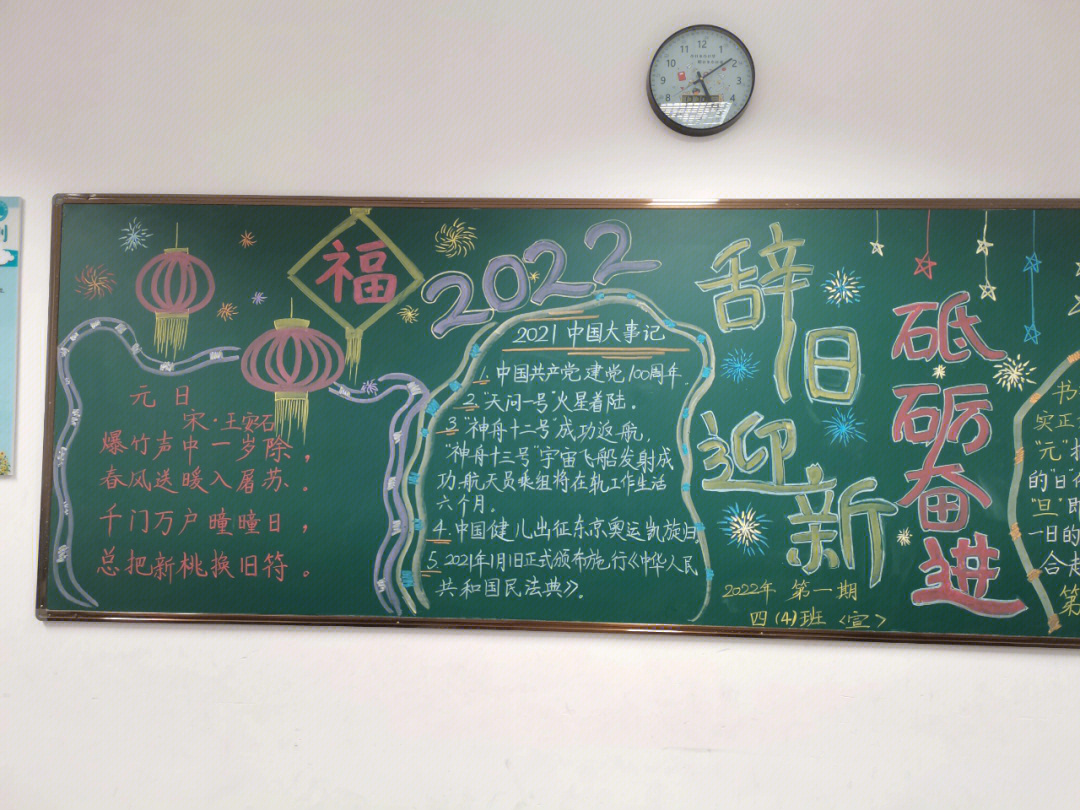 元日
宋·王安石
爆竹声中一岁除，
春风送暖入屠苏。
千门万户曈曈日，
总把新桃换旧符。
福
2022
2021中国大事记
1.中国共产党建党100周年.
2."天问一号"火星着陆.
3."神舟十二号"成功返航,
"神舟十三号"宇宙飞船发射成
功.航天员乘组将在轨工作生活
六个月.
4.中国健儿出征东京奥运凯旋归
5.2021年1月1日正式颁布施行《中华人民
共和国民法典》.
辞日
迎新
2022年 第一期
四(4)班〈宣〉
砥砺奋进
书
实正
"元"
的"日"
"旦"即
一日的
合起
第
12
1
2
3
4
8
9
10
11